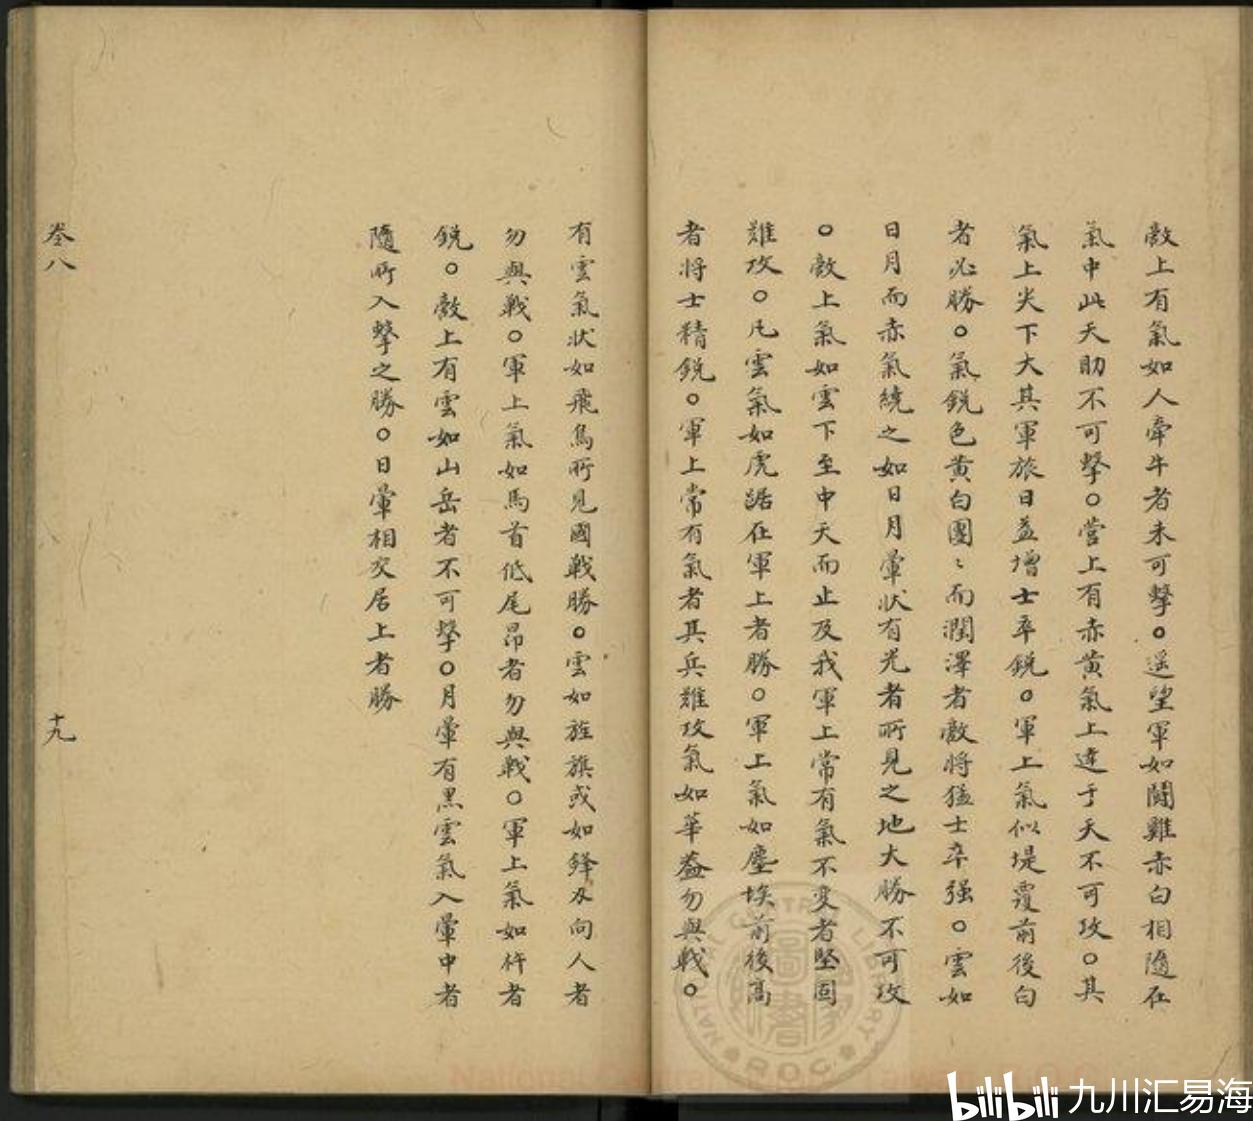 敵上有氣如人牽牛者未可擊○遥望軍如鬪雞赤白相隨在
氣中此天助不可擊○營上有赤黄氣上達于天不可攻○其
氣上尖下大其軍旅日益增士卒銳○軍上氣似堤覆前後白
者必勝○氣銳色黄白團〻而潤澤者敵將猛士卒强○雲如
日月而赤氣繞之如日月暈狀有光者所見之地大勝不可攻
○敵上氣如雲下至中天而止及我軍上常有氣不变者堅固
難攻○凡雲氣如虎踞在軍上者勝○軍上氣如塵埃前後高
者將士精銳○軍上常有氣者其兵難攻氣如華蓋勿與戰○
有雲氣狀如飛鳥所見國戰勝○雲如旌旗或如鋒刃向人者
勿與戰○軍上氣如馬首低尾昂者勿與戰○軍上氣如杵者
銳○敵上有雲如山岳者不可擊○月暈有黑雲氣入暈中者
隨所入擊之勝○日暈相交居上者勝
卷八
十九
NATIONAL CENTRAL LIBRARY
R.O.C.
bilibili 九川汇易海